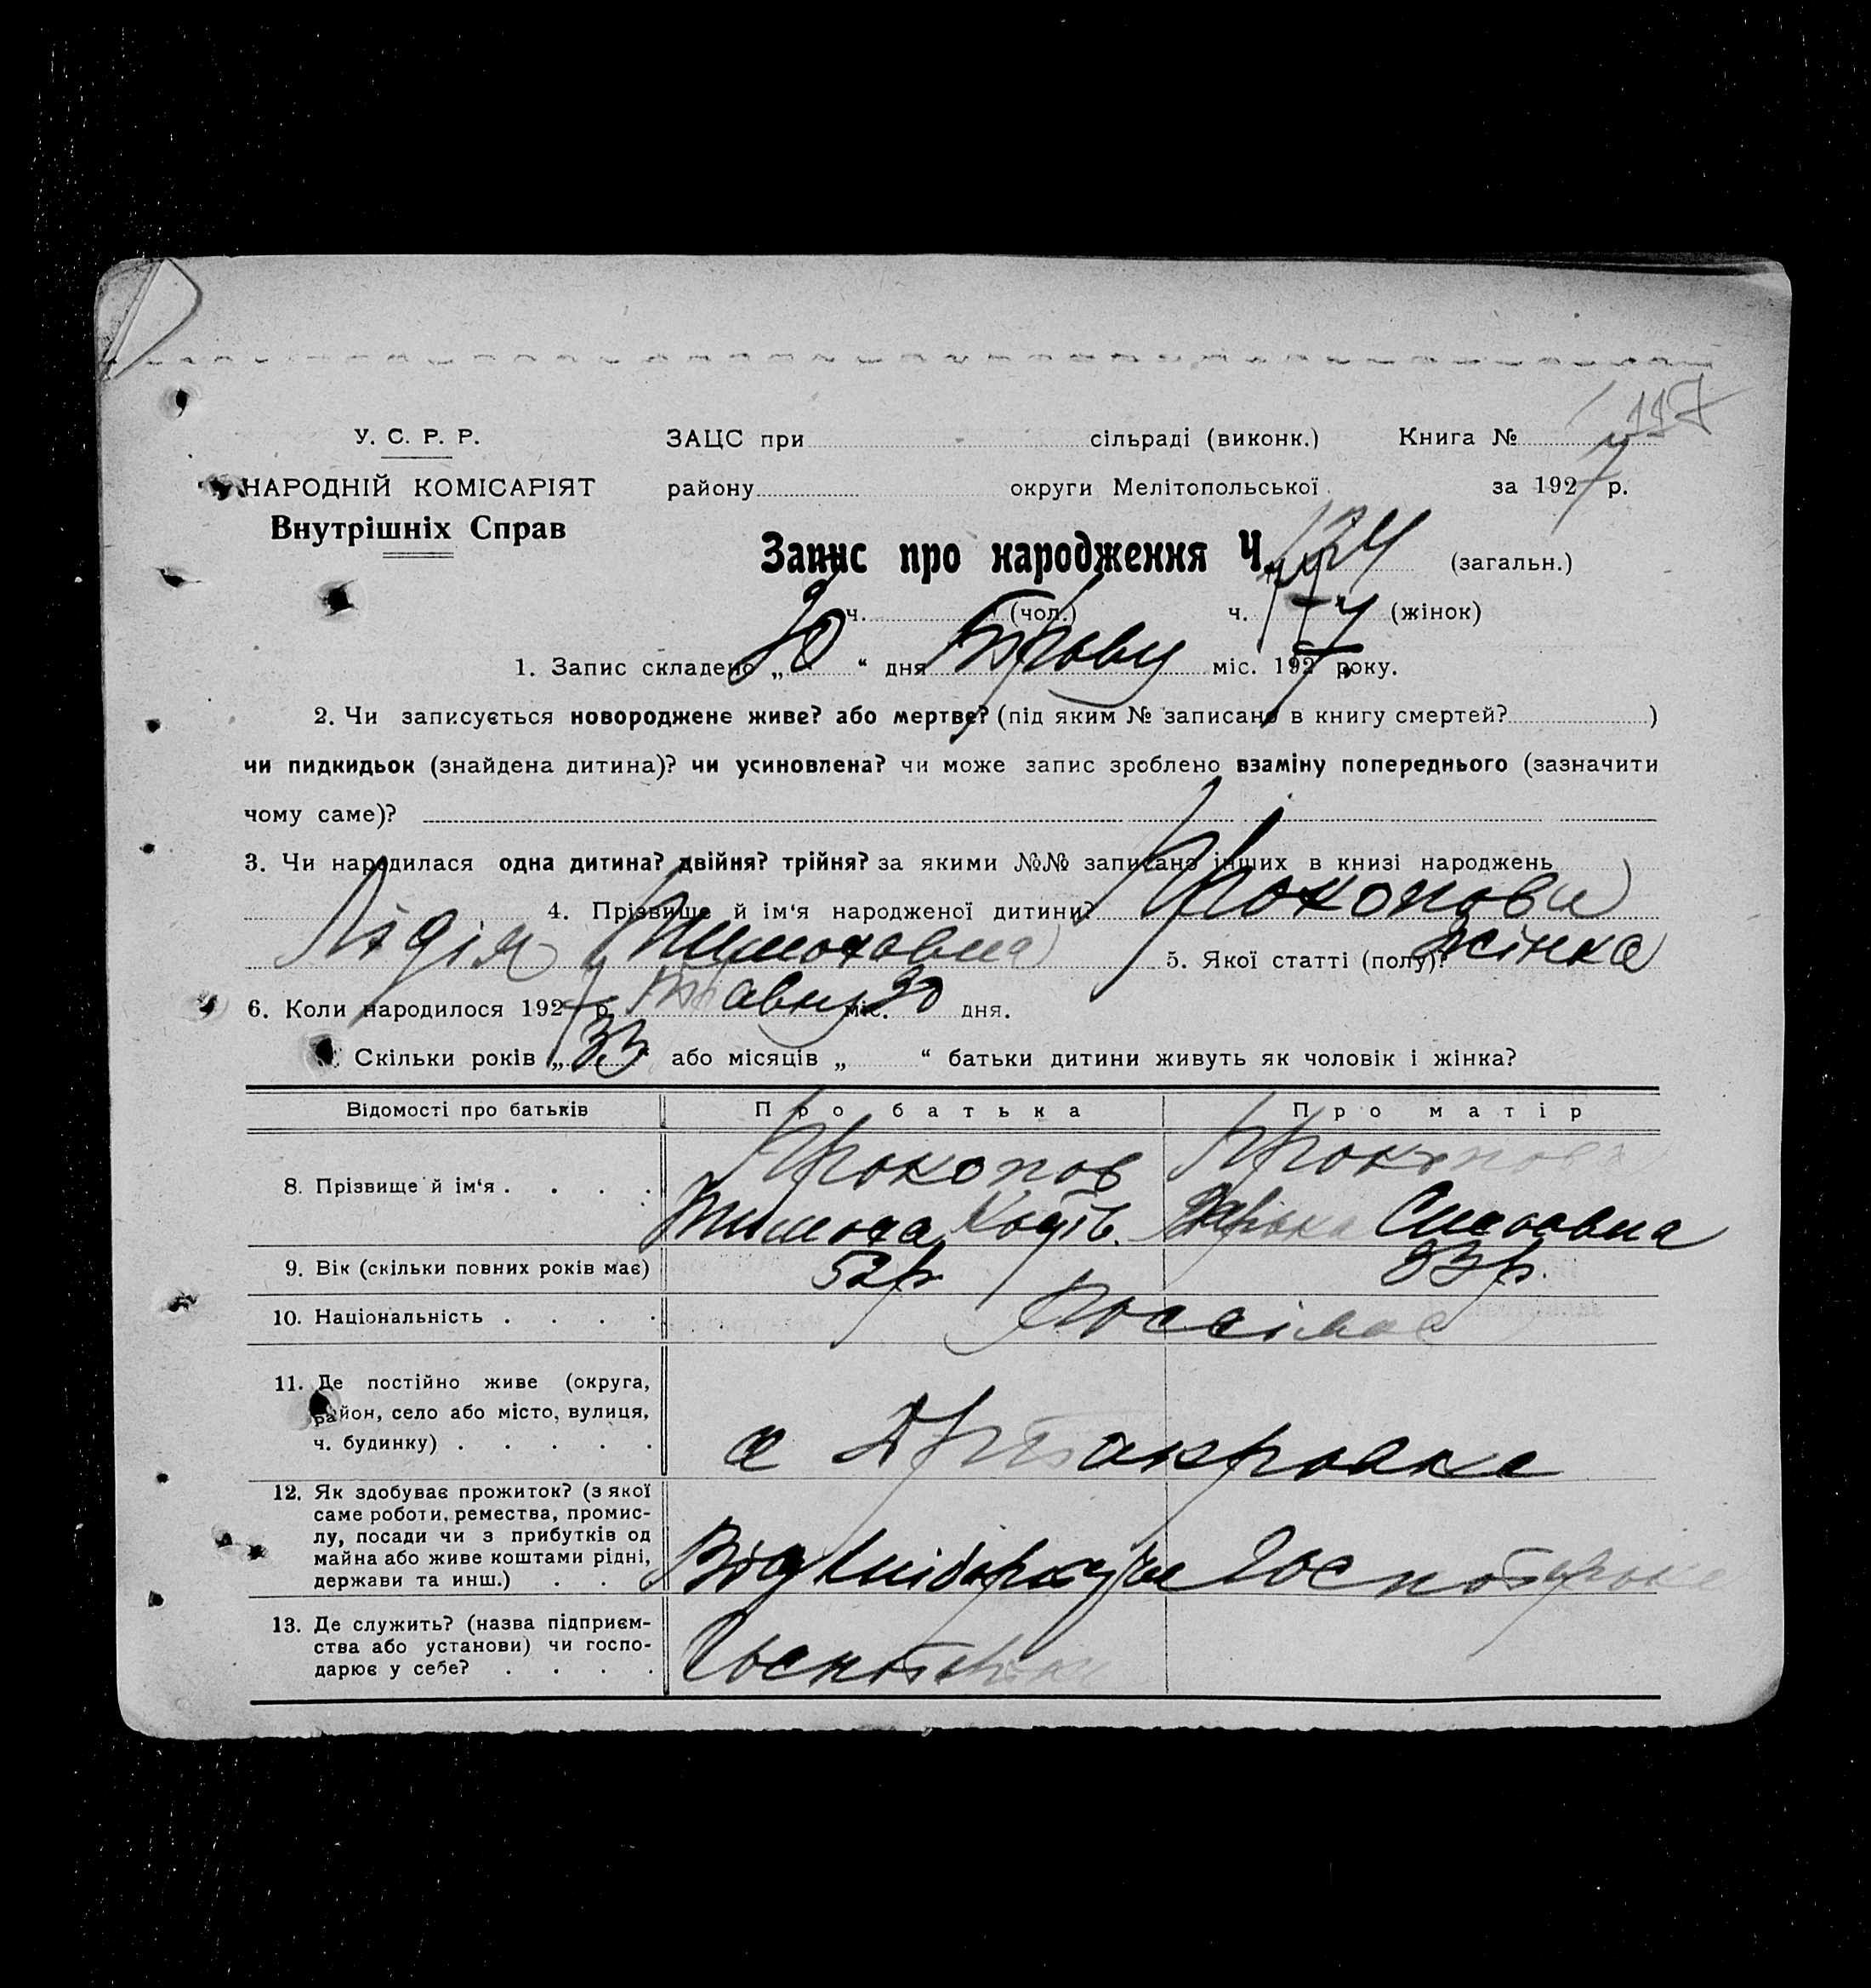 117
У. С. Р. Р. ЗАЦС при сільраді (виконк.) Книга №
НАРОДНІЙ КОМІСАРІЯТ району округи Мелітопольської за 1927 р.
Внутрішніх Справ
Запис про народження Ч. 134 (загальн.)
ч. (чол.) ч. (жінок)
1. Запис складено „30“ дня міс. 1927 року.
2. Чи записується новороджене живе? або мертве? (під яким № записано в книгу смертей? )
чи пидкидьок (знайдена дитина)? чи усиновлена? чи може запис зроблено взаміну попереднього (зазначити
чому саме)?
3. Чи народилася одна дитина? двійня? трійня? за якими №№ записано інших в книзі народжень
4. Прізвище й ім‘я народженої дитини? Прокопова
Лідія Тимохавна 5. Якої статті (полу)? жінка
6. Коли народилося 1927 р. Травну міс. 30 дня.
Скільки років „33 або місяців „ “ батьки дитини живуть як чоловік і жінка?
Відомості про батьків Про батька Про матір
8. Прізвище й ім‘я . . . . Прокопов Прокопова
Тимоха
9. Вік (скільки повних років має) 52р 53р.
10. Національність . . . .
11. Де постійно живе (округа,
район, село або місто, вулиця,
ч. будинку) . . . . .
12. Як здобуває прожиток? (з якої
саме роботи, ремества, промис-
лу, посади чи з прибутків од
майна або живе коштами рідні,
держави та инш.) . . .
13. Де служить? (назва підприєм-
ства або установи) чи госпо-
дарює у себе? . . . .